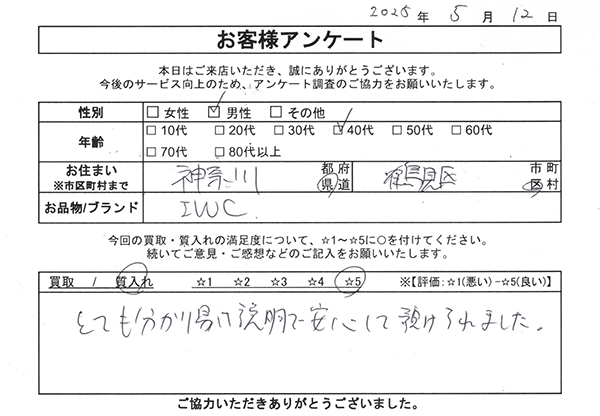 2025年 5月 12日
お客様アンケート
本日はご来店いただき、誠にありがとうございます。
今後のサービス向上のため、アンケート調査のご協力をお願いいたします。
性別 □女性 ☑男性 □その他
年齢 □10代 □20代 □30代 ☑40代 □50代 □60代
□70代 □80代以上
お住まい 神奈川 都府 鶴見区 市町
※市区町村まで 県道 区村
お品物/ブランド IWC
今回の買取・質入れの満足度について、☆1～☆5に○を付けてください。
続いてご意見・ご感想などのご記入をお願いいたします。
買取 / 質入れ ☆1 ☆2 ☆3 ☆4 ☆5 ※【評価:☆1(悪い)-☆5(良い)】
とても分かり易い説明で安心して預けられました。
ご協力いただきありがとうございました。